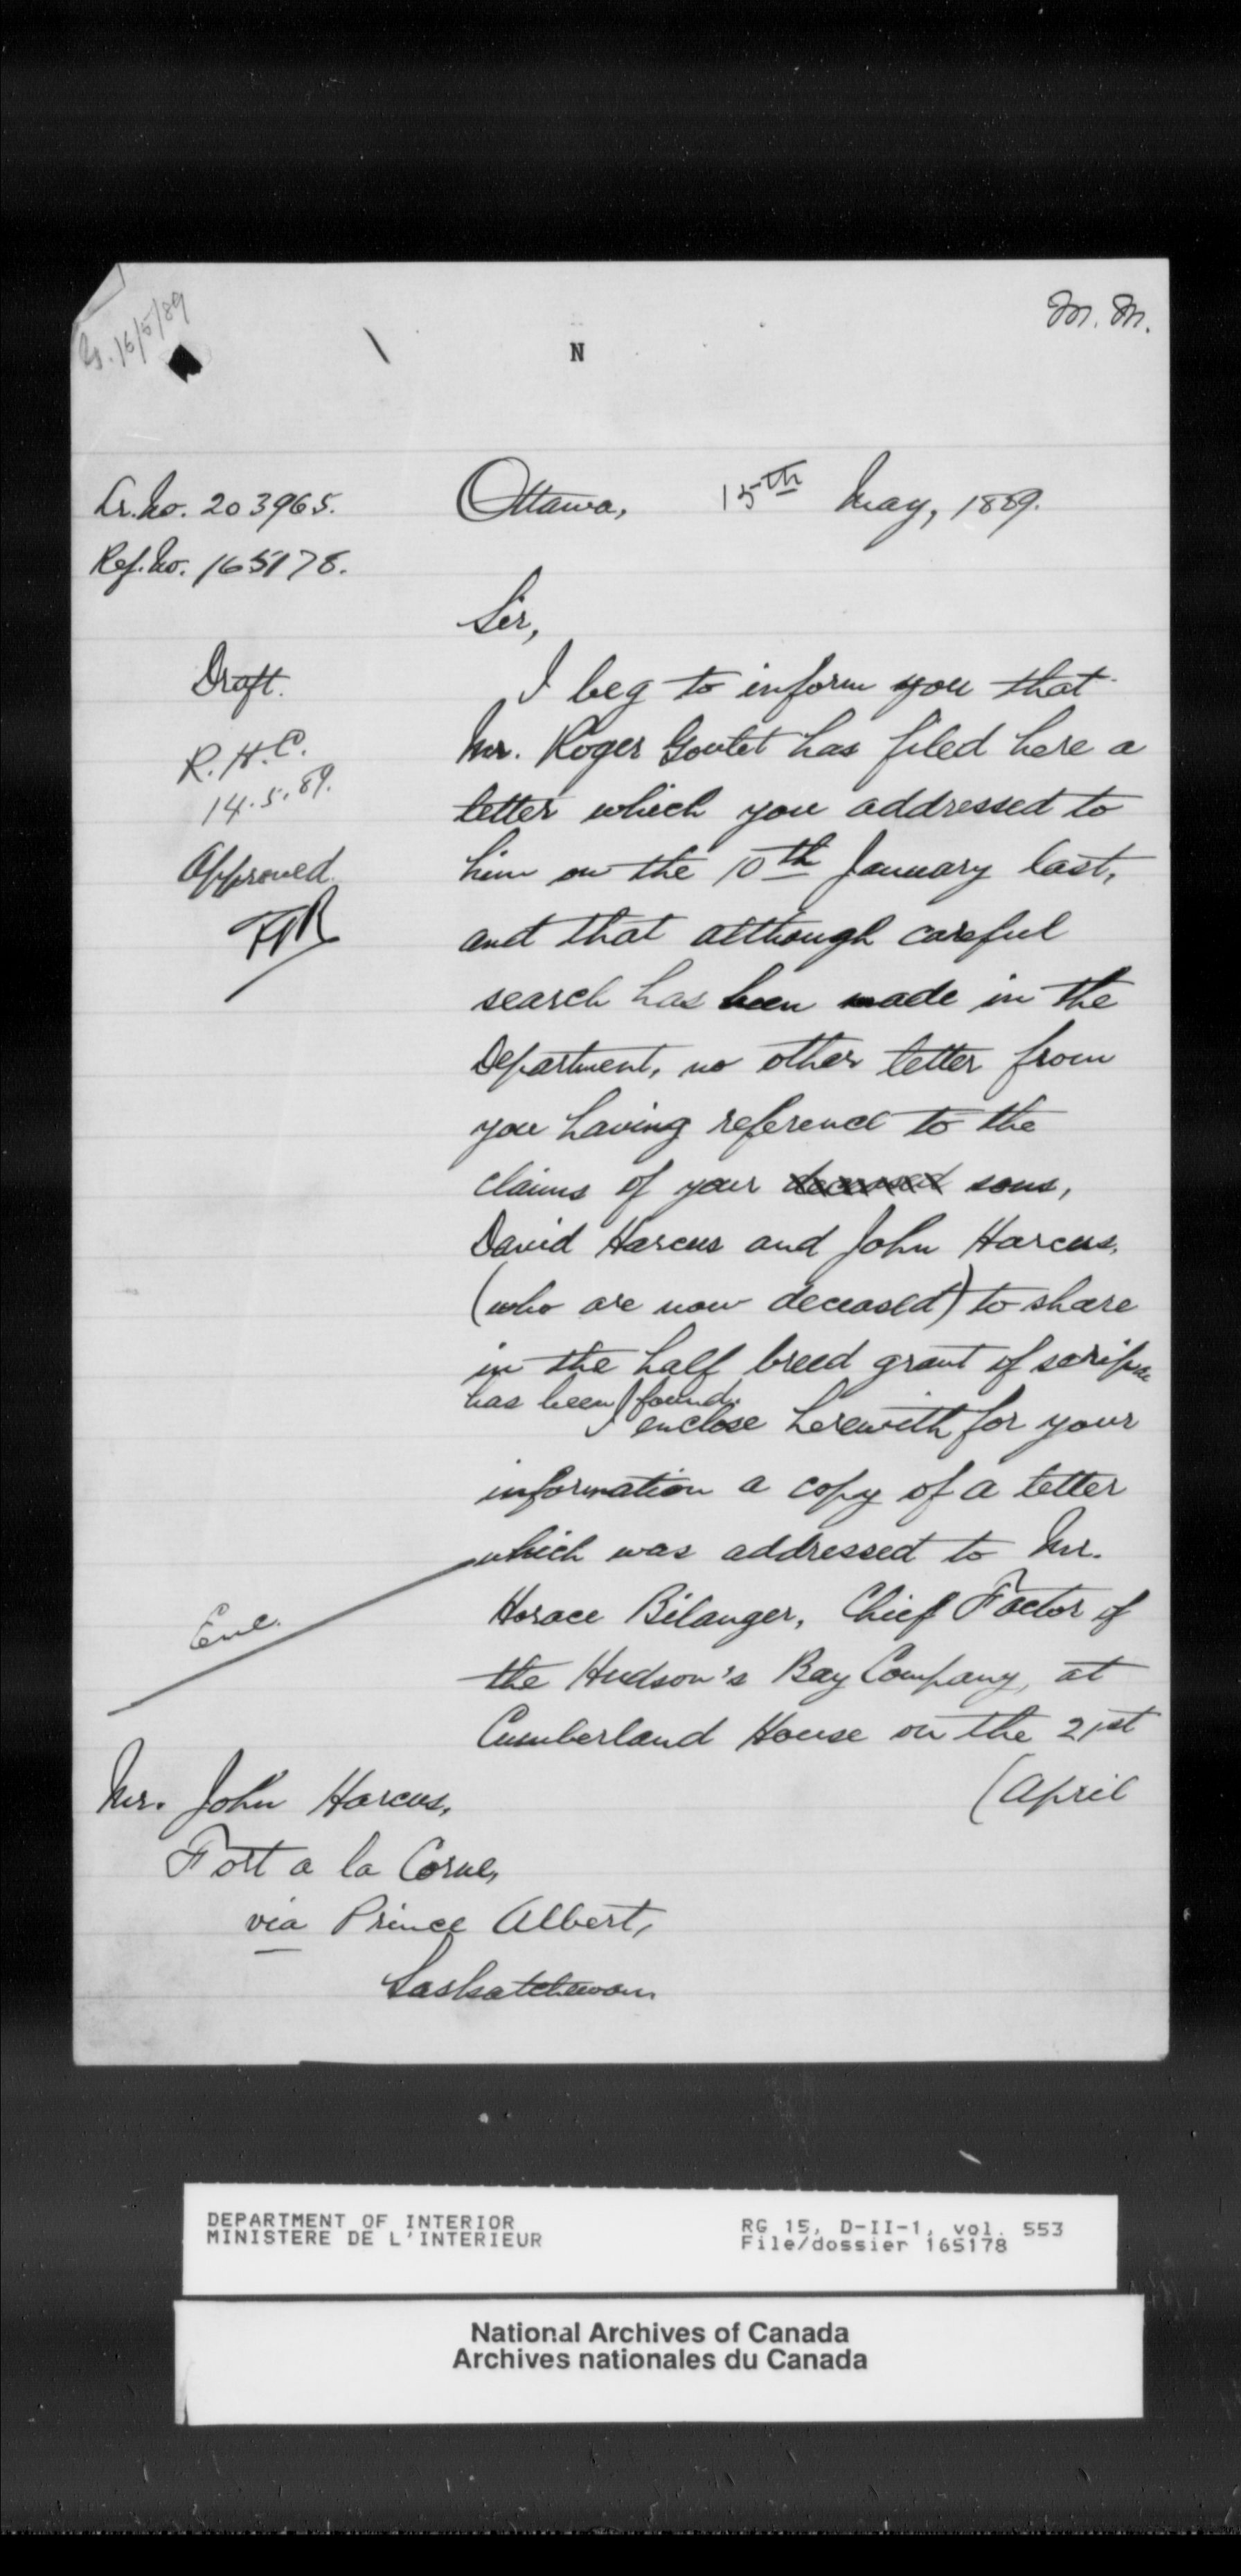 M. M.
16/5/89
N
Lr. No. 203965.
Ref. No. 165178.
Ottawa, 15th May, 1889.
Sir,
Draft.
R. H. C.
14.5.89.
Approved.
I beg to inform you that
Mr. Roger Goulet has filed here a
letter which you addressed to
him on the 10th January last,
and that although careful
search has been made in the
Department, no other letter from
you having reference to the
claims of your deceased sons,
David Harcus and John Harcus,
(who are now deceased) to share
in the half breed grant of scrip
has been found.
I enclose herewith for your
information a copy of a letter
which was addressed to Mr.
Horace Bélanger, Chief Factor of
the Hudson's Bay Company, at
Cumberland House on the 21st
(April
Enc.
Mr. John Harcus,
Fort a la Corne,
via Prince Albert,
Saskatchewan
DEPARTMENT OF INTERIOR
MINISTERE DE L'INTERIEUR
RG 15, D-II-1, vol. 553
File/dossier 165178
National Archives of Canada
Archives nationales du Canada